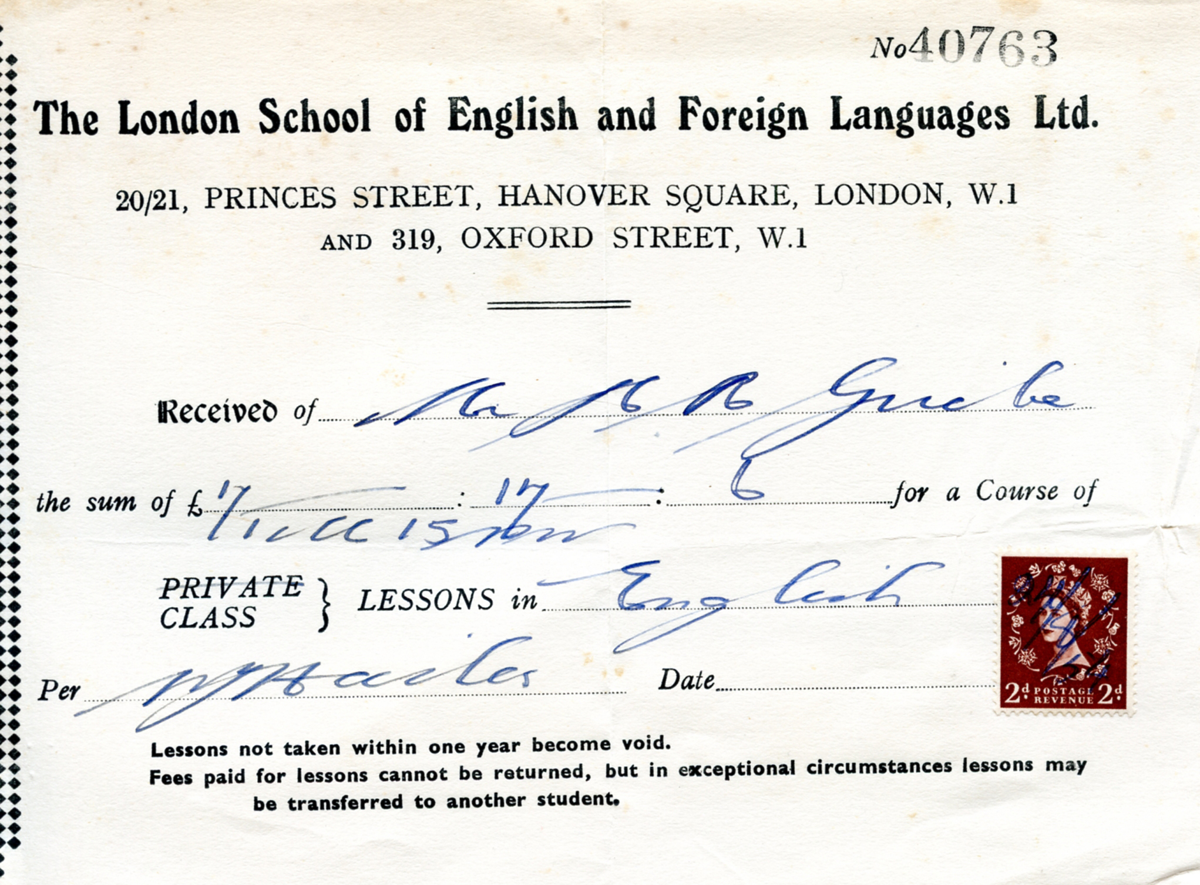 No 40763
The London School of English and Foreign Languages Ltd.
20/21, PRINCES STREET, HANOVER SQUARE, LONDON, W.1
AND 319, OXFORD STREET, W.1
Received of Mr
the sum of £ 17 : 17 : 6 for a Course of
PRIVATE
CLASS } LESSONS in English
Per Date
2d POSTAGE REVENUE 2d
Lessons not taken within one year become void.
Fees paid for lessons cannot be returned, but in exceptional circumstances lessons may
be transferred to another student.